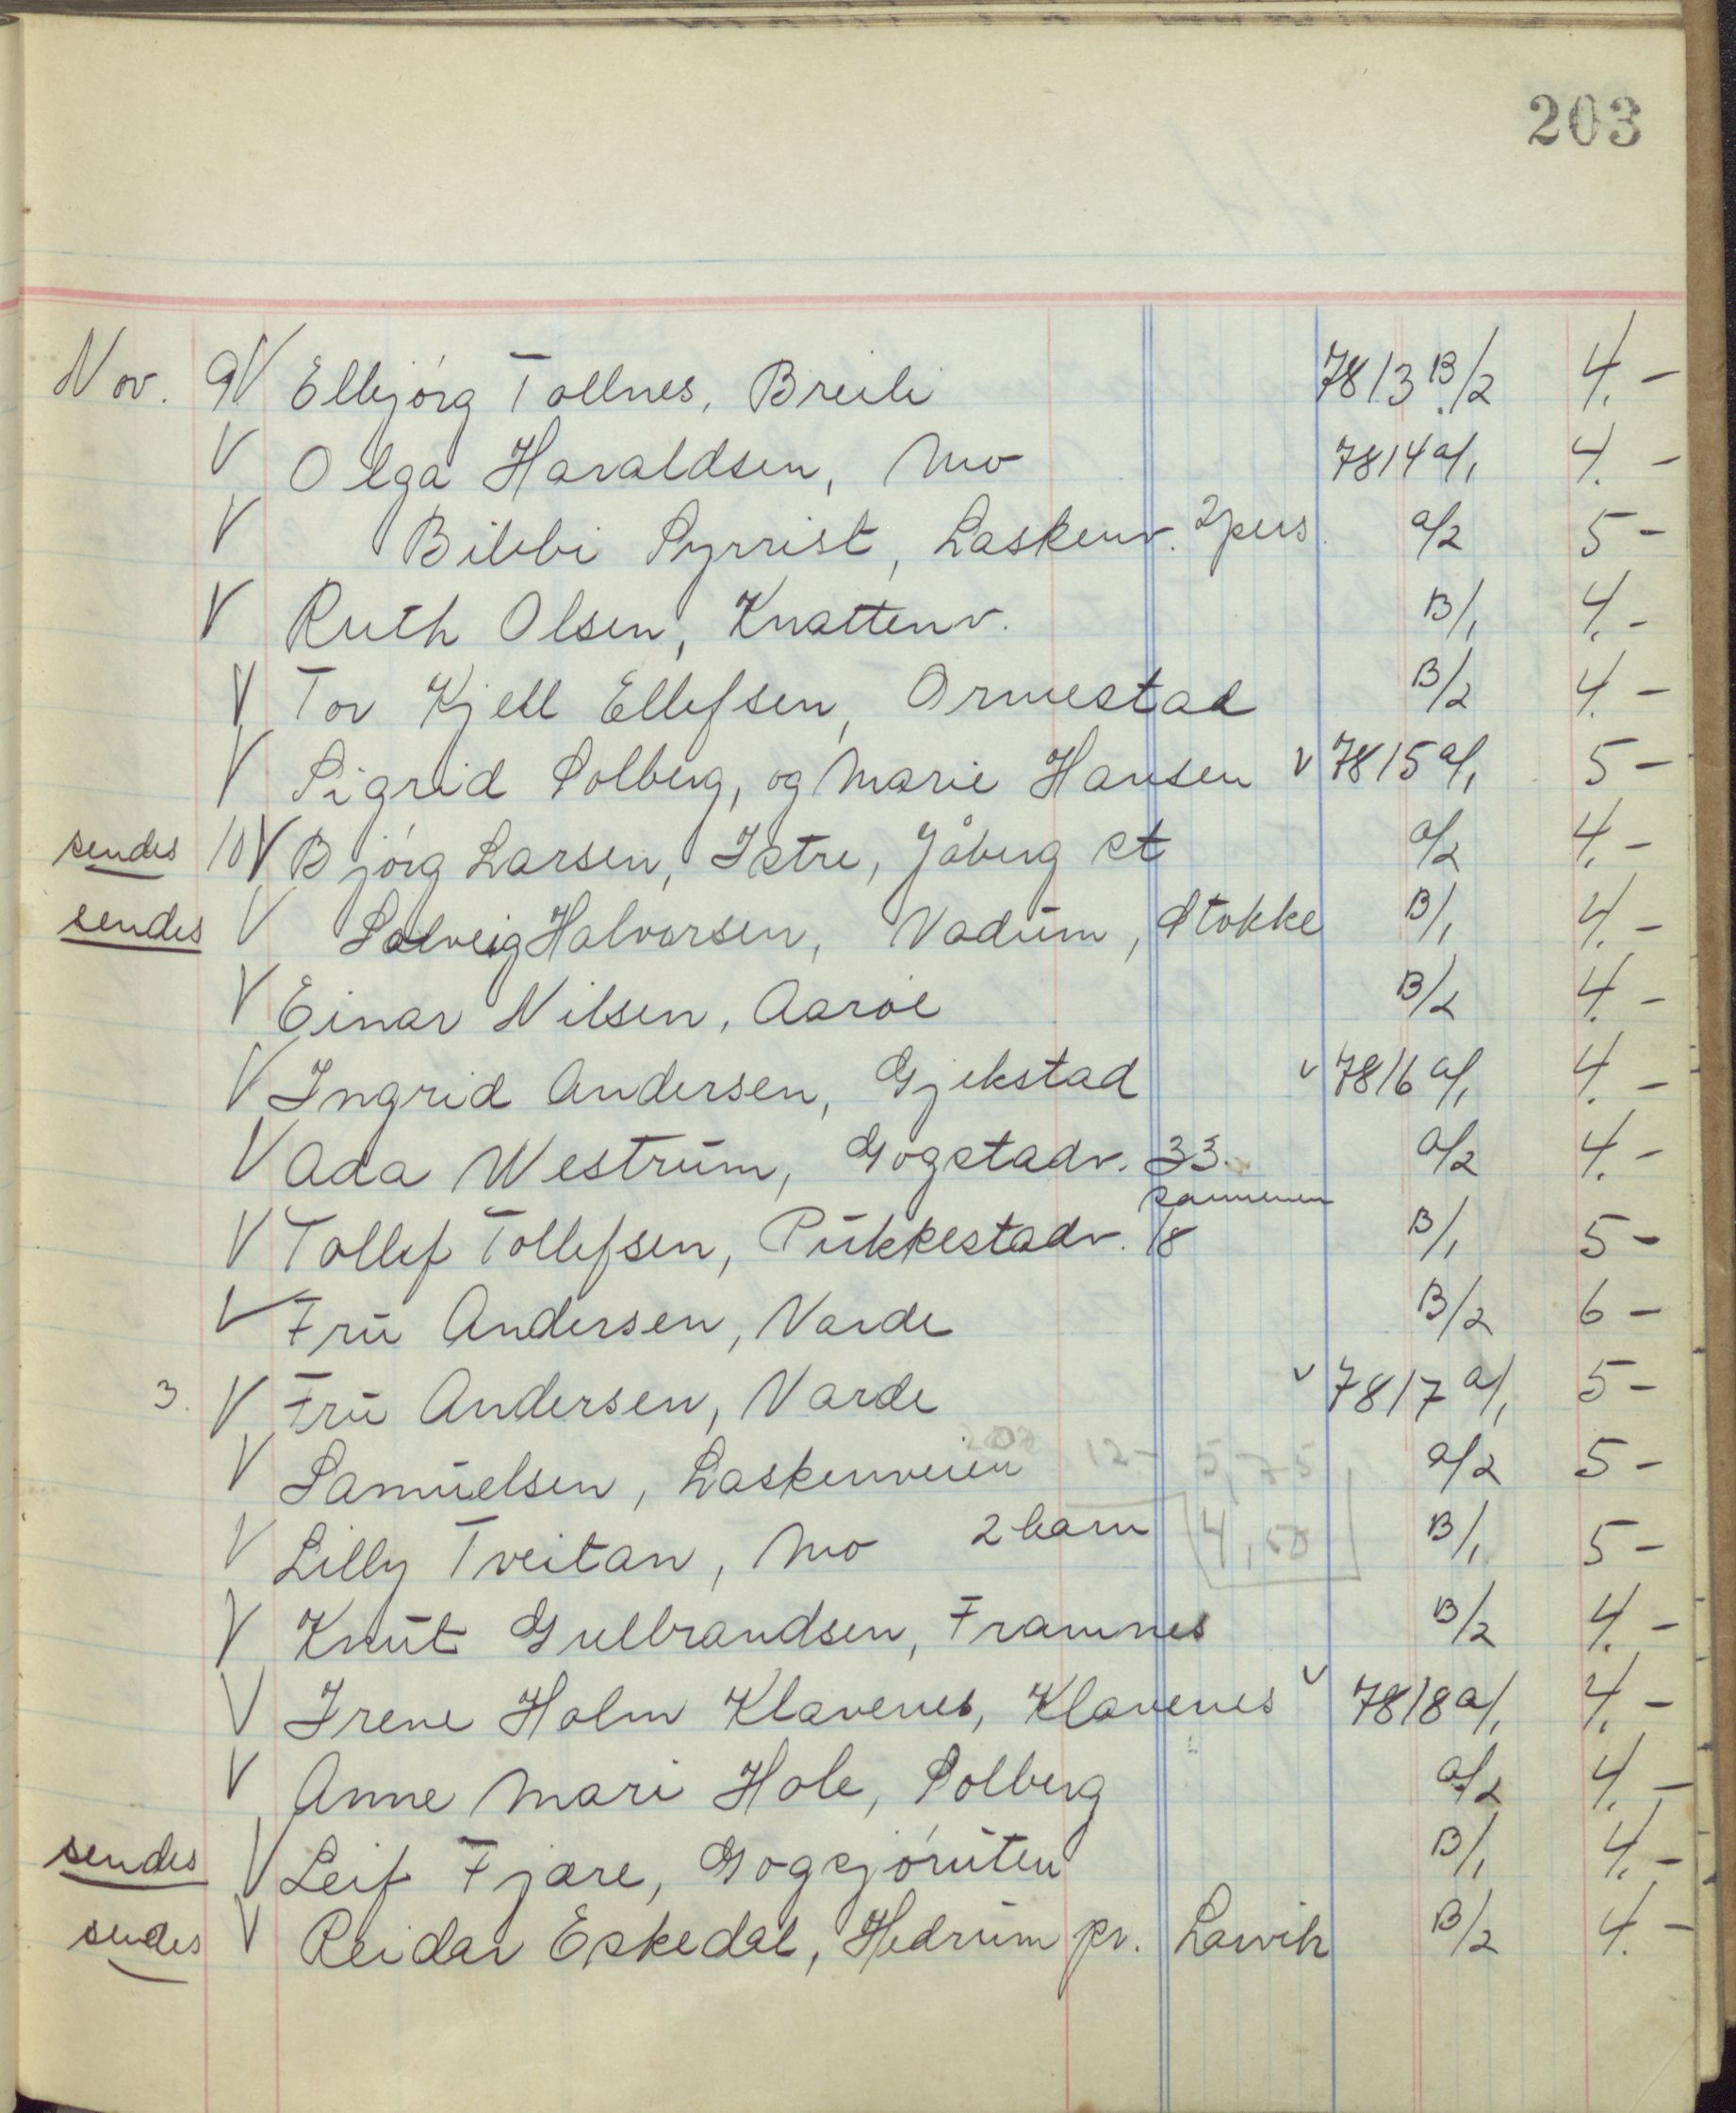 203
Nov. 9 V Elbjørg Tollnes, Breili 7813 B/2 4.-
V Olga Haraldsen, Mo 7814 a/1 4.-
V Bibbi Syrrist, Laskenv. 2 pers. a/2 5-
V Ruth Olsen, Knattenv. B/1 4.-
V Tor Kjell Ellefsen, Ormestad B/2 4.-
V Sigrid Solberg, og Marie Hansen v 7815 a/1 5-
sendes 10 V Bjørg Larsen, Istre, Jåberg st a/2 4.-
sendes V Solveig Halvorsen, Vadum, Stokke B/1 4.-
V Einar Nilsen, Aarøe B/2 4.-
V Ingrid Andersen, Gjekstad v 7816 a/1 4.-
V Ada Westrum, Gogstadv. 33. a/2 4.-
sammen
V Tollef Tollefsen, Pukkestadv. 18 B/1 5-
V Fru Andersen, Varde B/2 6-
3. V Fru Andersen, Varde v 7817 a/1 5-
V Samuelsen, Laskenveien 12- 5,75 a/2 5-
V Lilly Tveitan, Mo 2 barn B/1 5-
V Knut Gulbrandsen, Framnes B/2 4.-
V Irene Holm Klavenes, Klavenes v 7818 a/1 4.-
V Anne Mari Hole, Solberg a/2 4.-
sendes V Leif Fjære, Gogsjøruten B/1 4.-
sendes V Reidar Eskedal, Hedrum pr. Larvik B/2 4.-